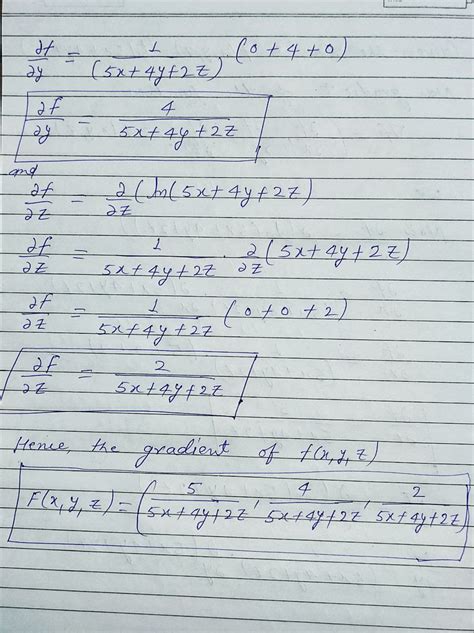 ∂f/∂y = 1/(5x+4y+2z) (0+4+0)
∂f/∂y = 4/5x+4y+2z
and
∂f/∂z = ∂/∂z (ln(5x+4y+2z)
∂f/∂z = 1/5x+4y+2z · ∂/∂z (5x+4y+2z)
∂f/∂z = 1/5x+4y+2z (0+0+2)
∂f/∂z = 2/5x+4y+2z
Hence, the gradient of f(x,y,z)
F(x,y,z) = (5/5x+4y+2z, 4/5x+4y+2z, 2/5x+4y+2z)